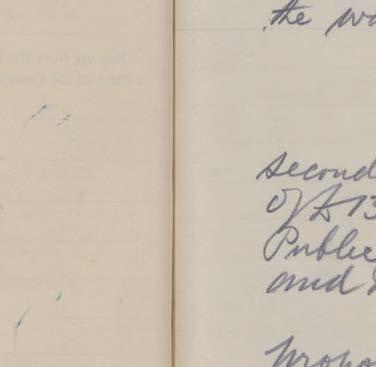 the wa
second
of £13
Public
and
Propo